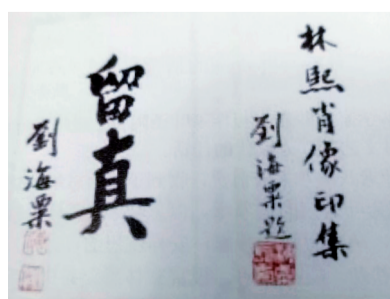 林熙肖像印集
劉海粟题
留真
劉海粟